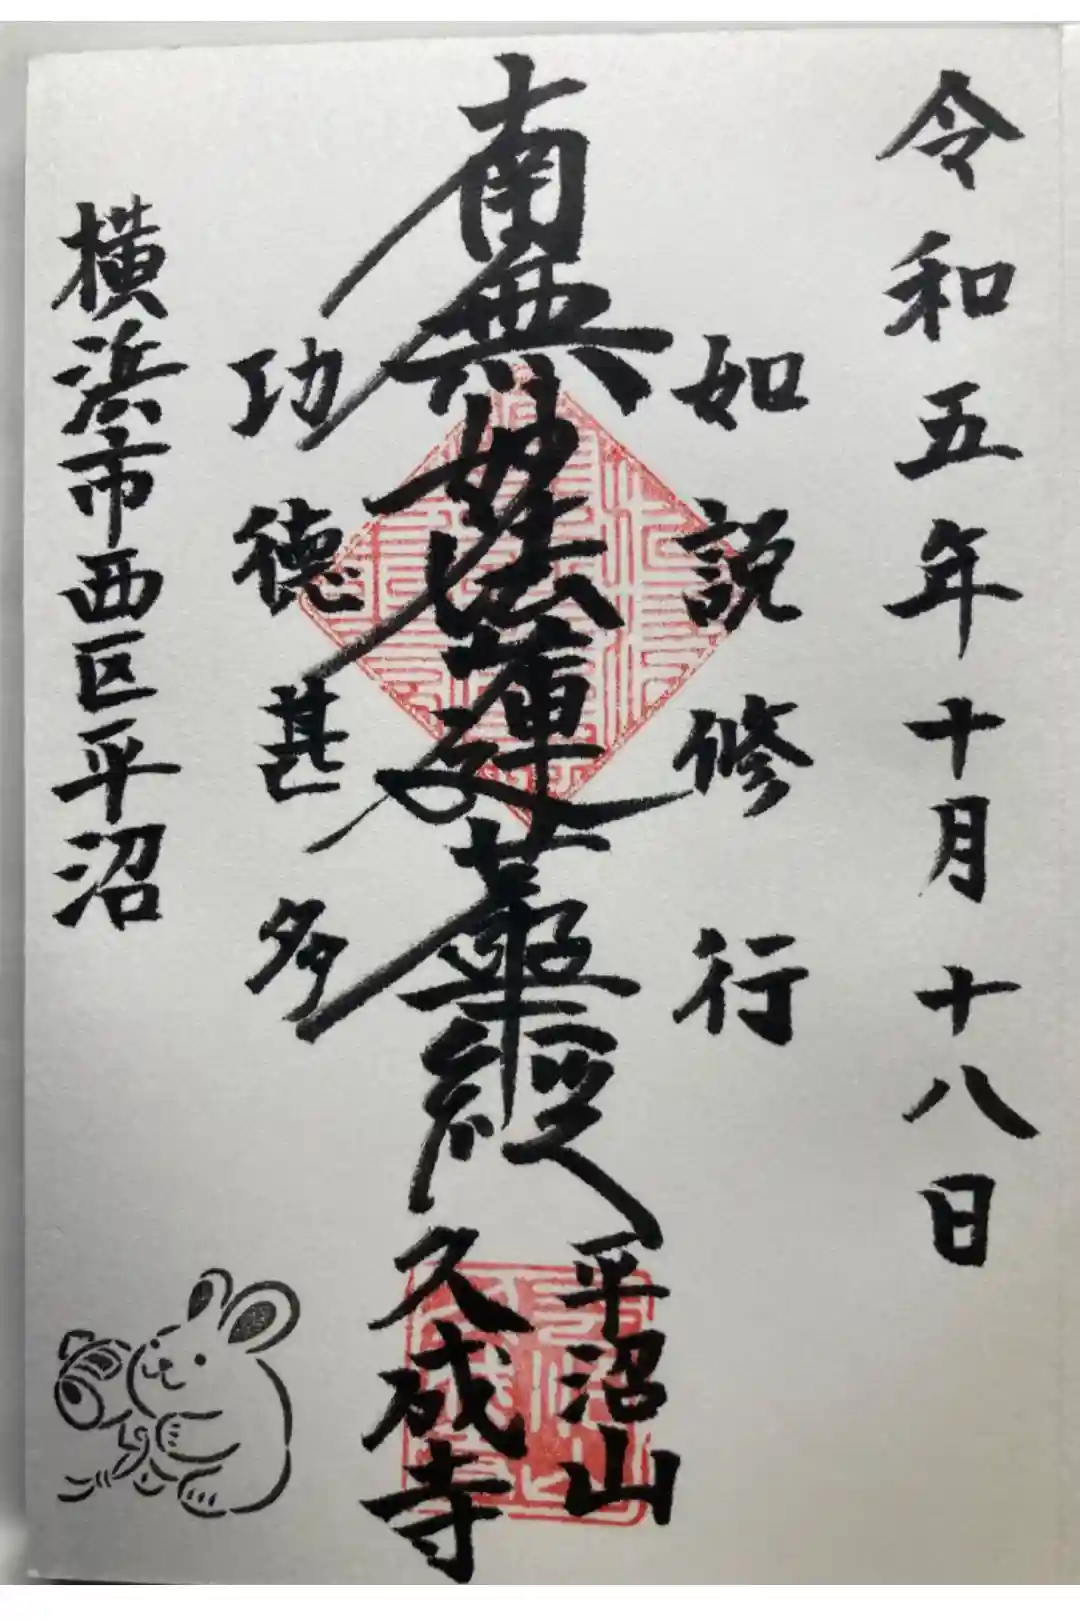 令和五年十月十八日
如説修行
南無妙法蓮華経
平沼山
久成寺
功徳甚多
横浜市西区平沼